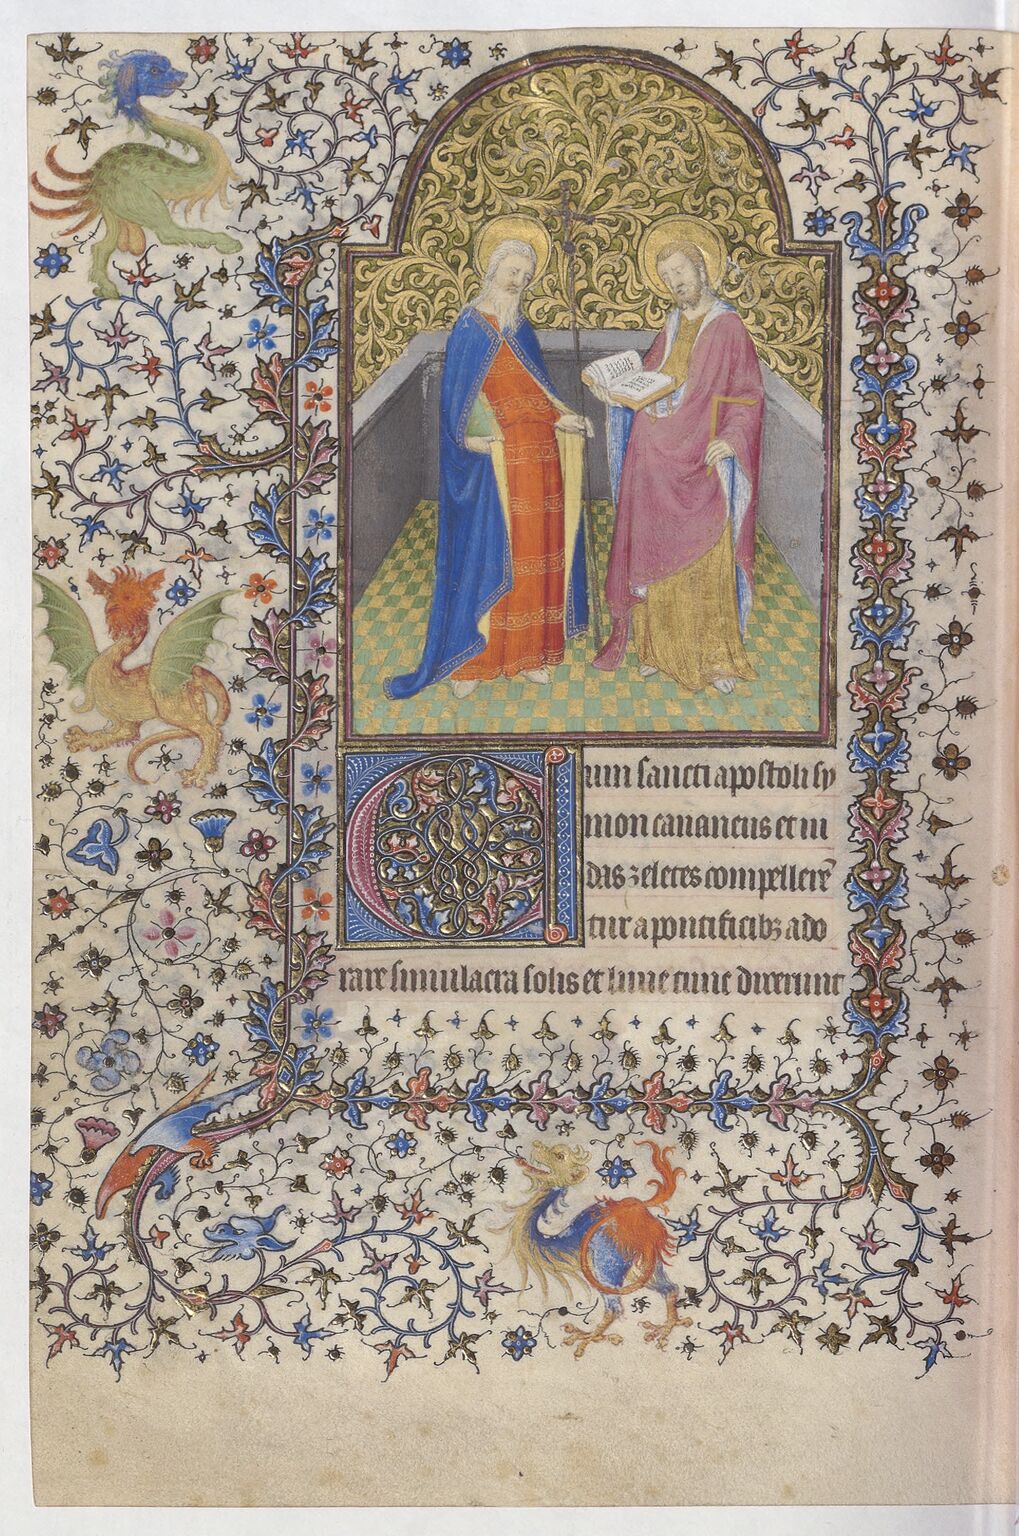 Cum sancti apostoli sy
mon cananeus et iu
das zeletes compellerē
tur a pontificibꝫ ado
rare simulacra solis et lune tunc dixerunt